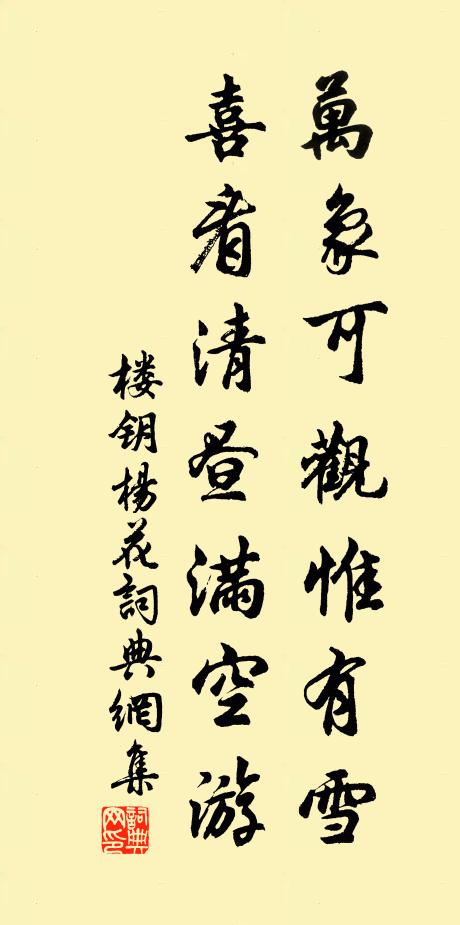 萬象可觀惟有雪
喜看清昼滿空游
楼钥楊花詞典網集
詞典网印